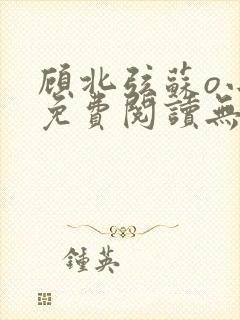 顾北弦蘇
免費閱讀無
鍾英